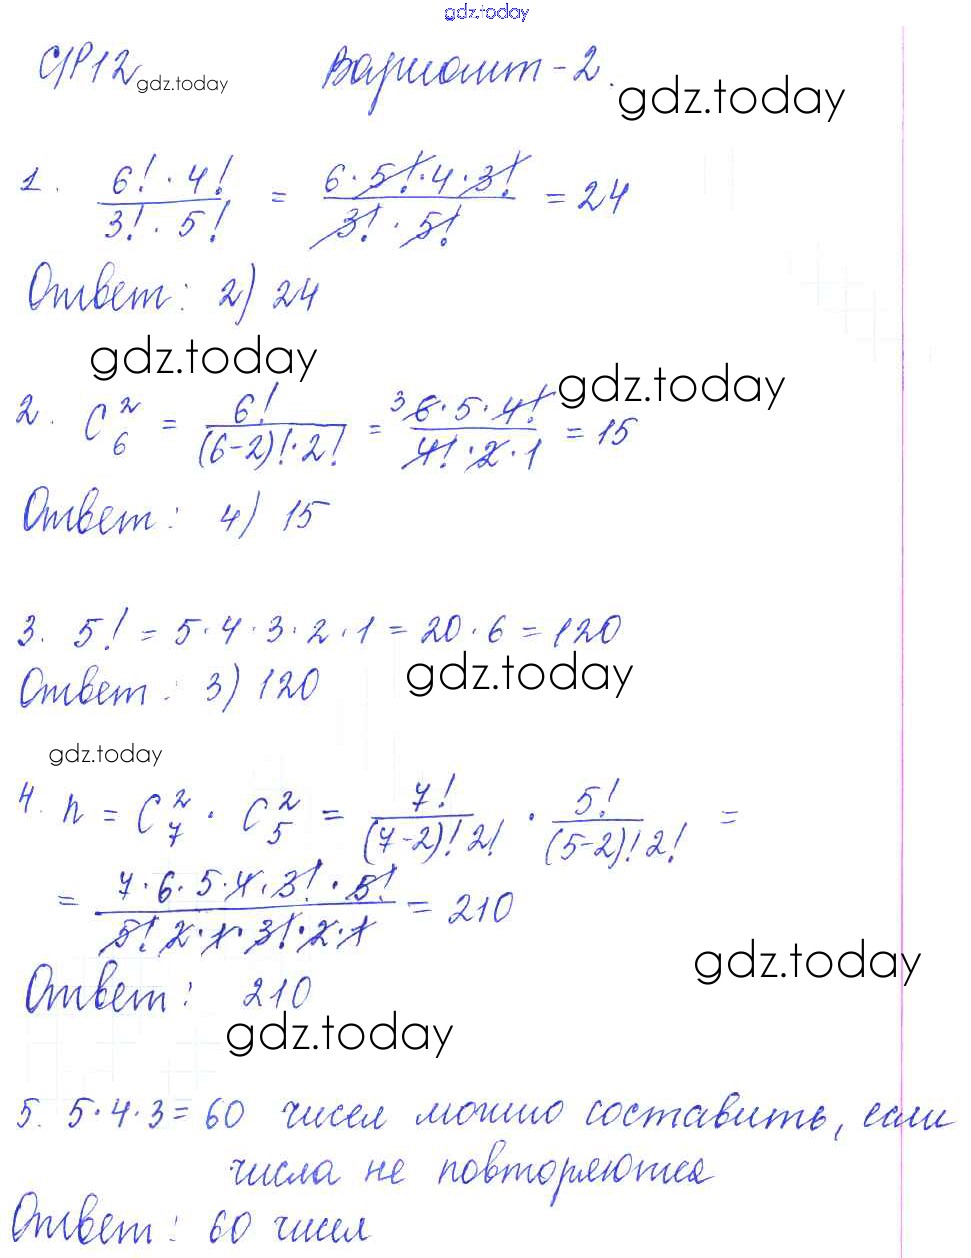 gdz.today
С/Р12 gdz.today Вариант-2. gdz.today
1. 6! · 4! / 3! · 5! = 6 · 5! · 4 · 3! / 3! · 5! = 24
Ответ: 2) 24
gdz.today
gdz.today
2. C₆² = 6! / (6-2)! · 2! = ³6 · 5 · 4! / 4! · 2 · 1 = 15
Ответ: 4) 15
3. 5! = 5 · 4 · 3 · 2 · 1 = 20 · 6 = 120
Ответ: 3) 120 gdz.today
gdz.today
4. n = C₇² · C₅² = 7! / (7-2)! 2! · 5! / (5-2)! 2! =
= 7 · 6 · 5 · 4 · 3! · 5! / 5! 2 · 1 · 3! · 2 · 1 = 210
gdz.today
Ответ: 210
gdz.today
5. 5 · 4 · 3 = 60 чисел можно составить, если
числа не повторяются
Ответ: 60 чисел